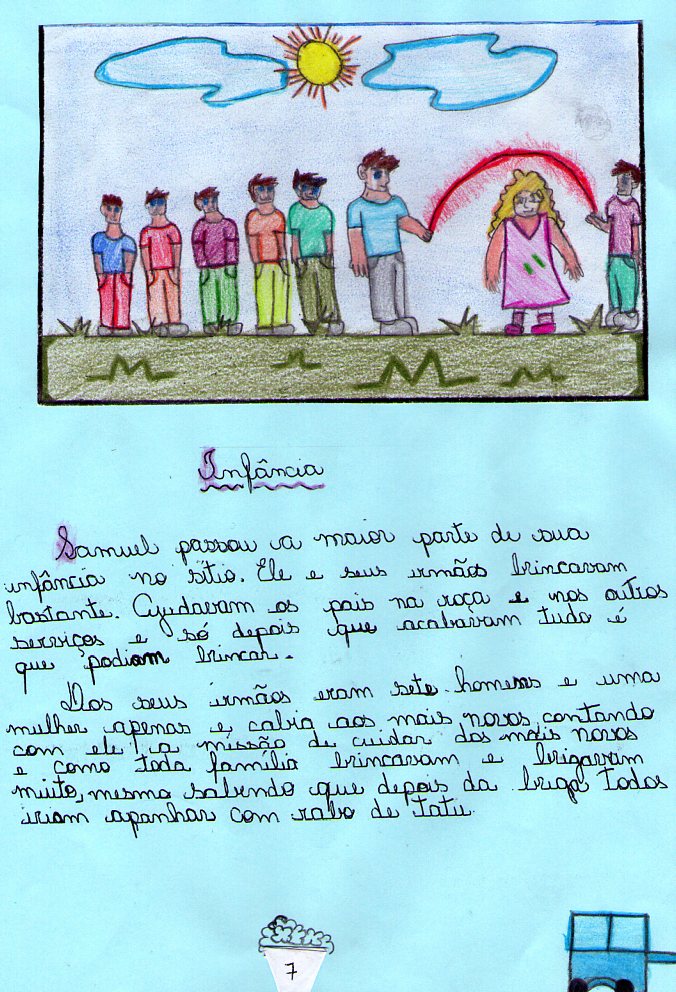 Infância
Samuel passou a maior parte de sua
infância no sítio. Ele e seus irmãos brincavam
bastante. Ajudavam os pais na roça e nos outros
serviços e só depois que acabavam tudo é
que podiam brincar.
Dos seus irmãos eram sete homens e uma
mulher apenas e cabia aos mais novos, contando
com ele, a missão de cuidar dos mais novos
e como toda família brincavam e brigavam
muito, mesmo sabendo que depois da briga todos
iriam apanhar com rabo de tatu.
7